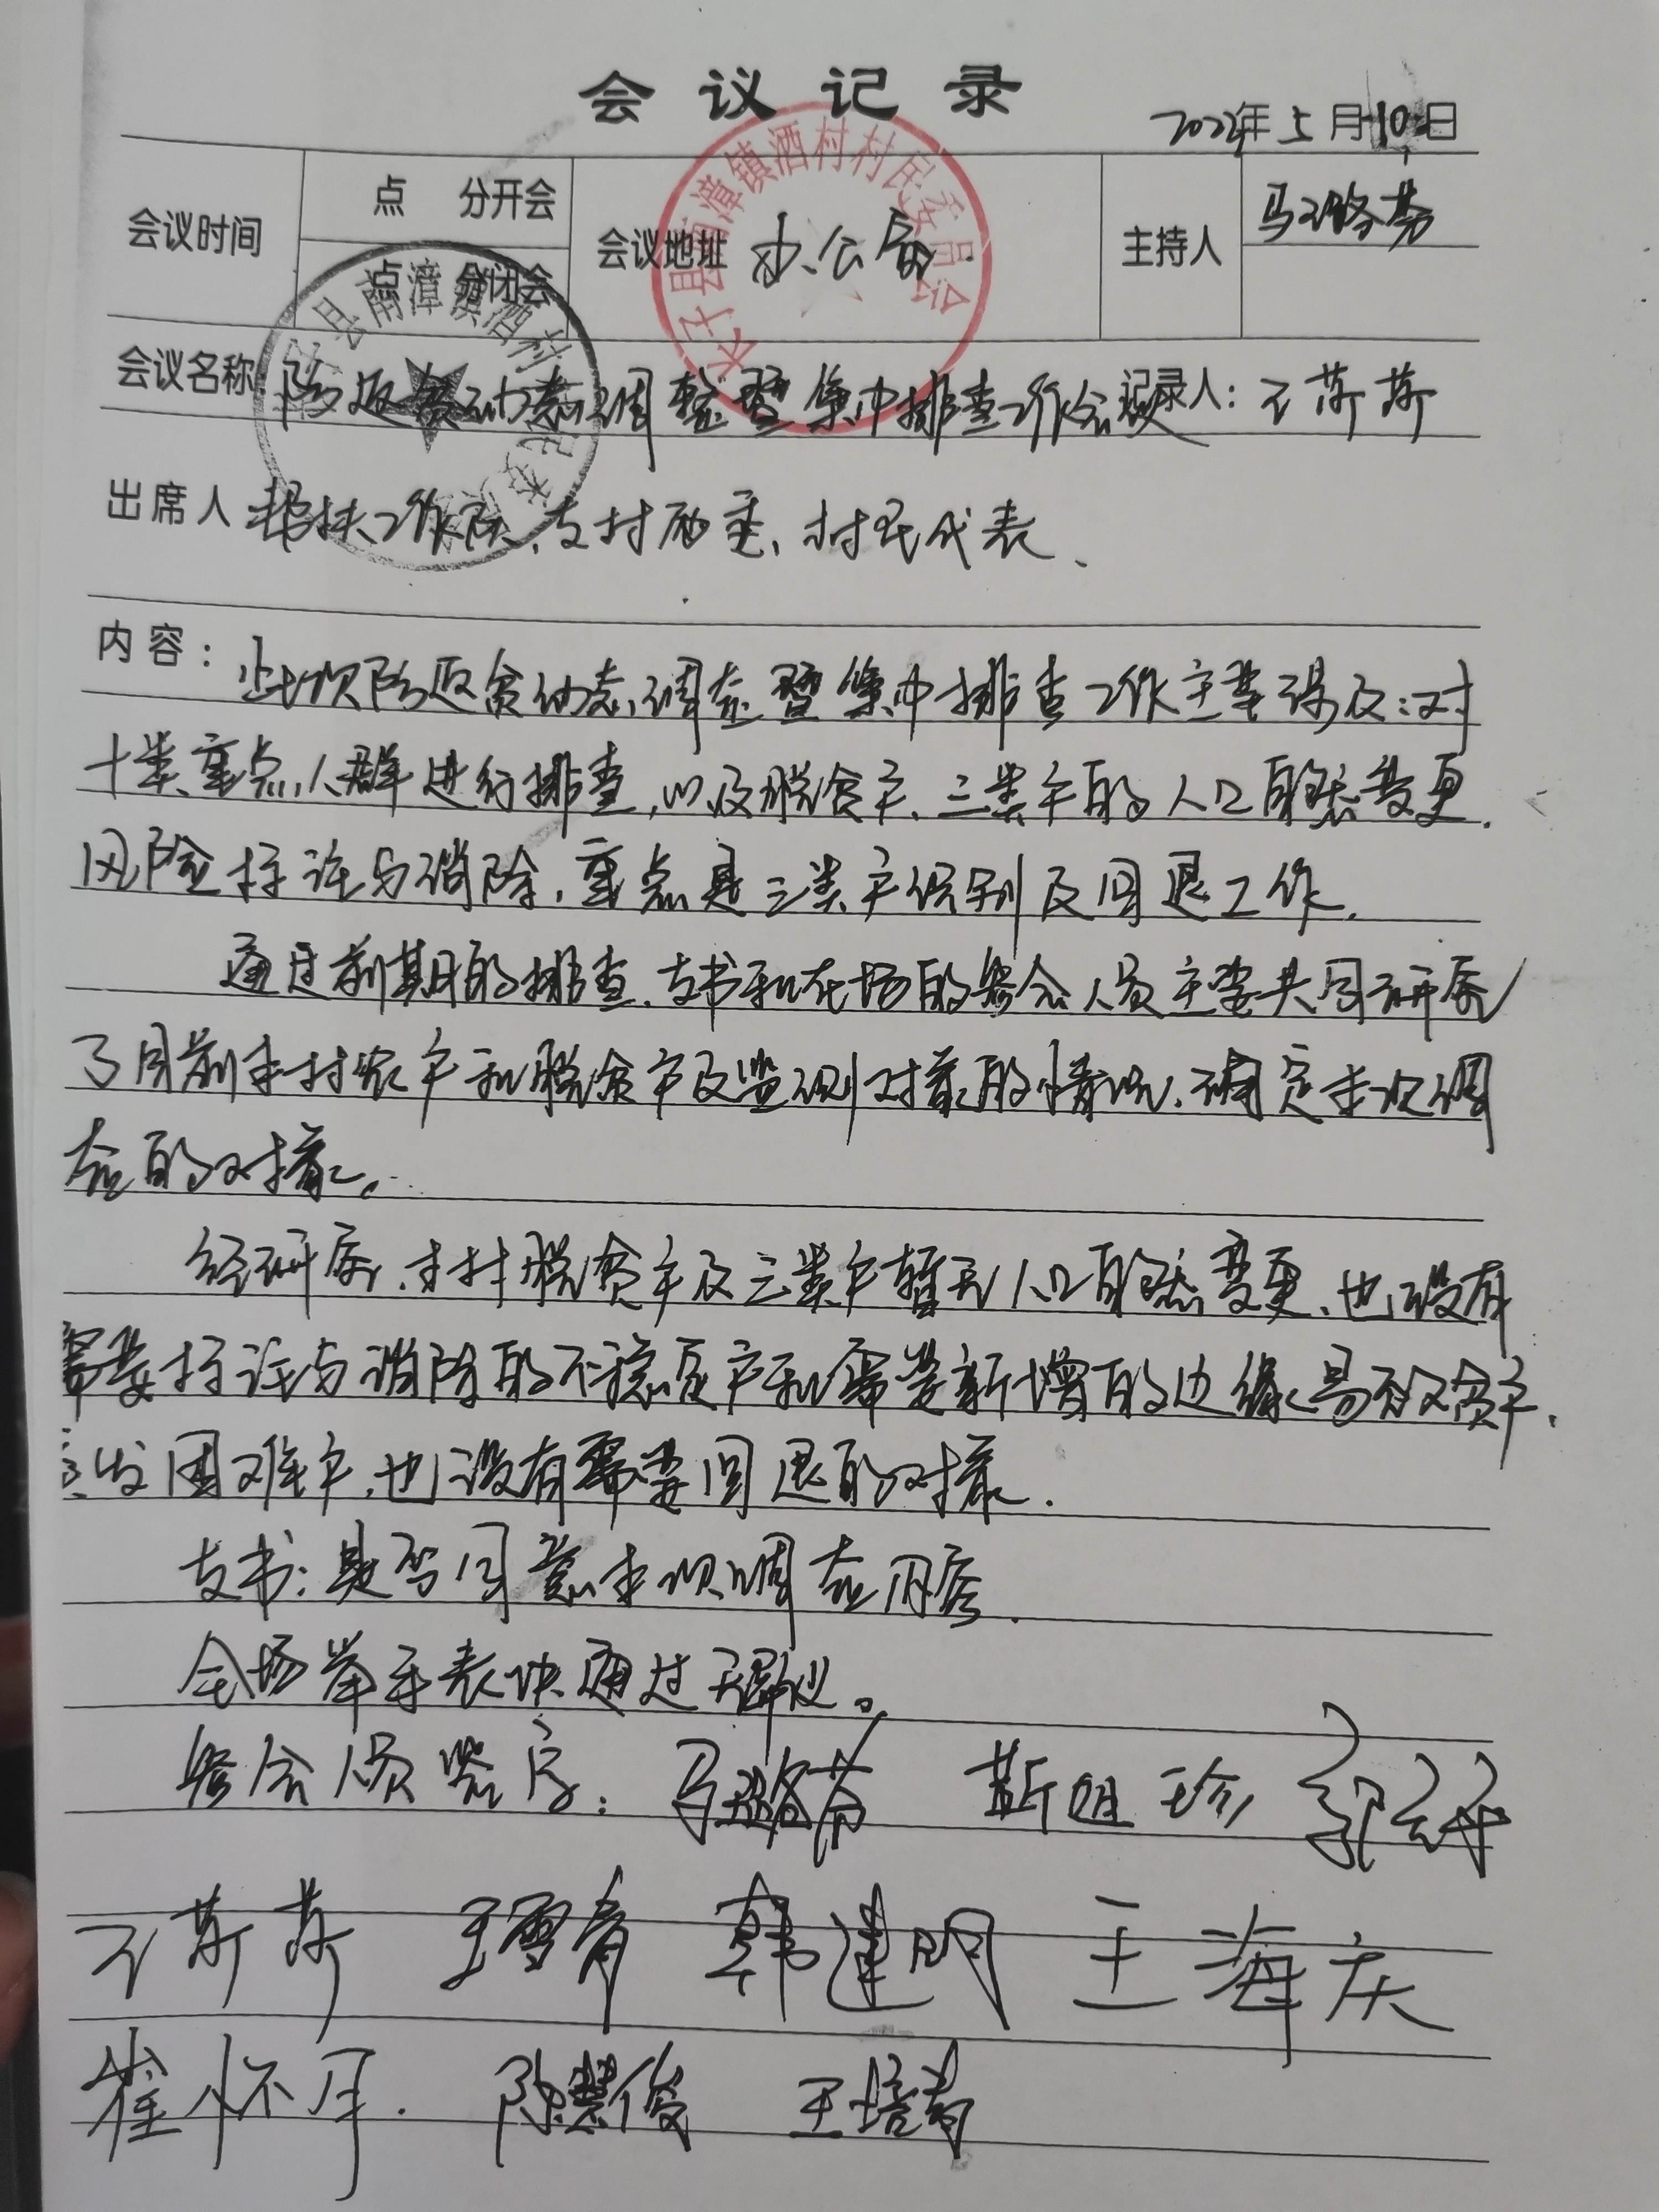 会议记录
2022年5月10日
会议时间 点 分开会 会议地址 办公室 主持人 马璐芳
点 分闭会
长子县南漳镇酒村村民委员会
县南漳镇酒村民委
会议名称 防返贫动态调整暨集中排查工作会议 记录人: 王苏苏
出席人 帮扶工作队、支村两委、村民代表、
内容: 此次防返贫动态调整暨集中排查工作主要涉及:对
十类重点人群进行排查,以及脱贫户、三类户的人口自然变更、
风险标注与消除,重点是三类户识别及回退工作.
通过前期的排查,支书和在场的参会人员主要共同研究
了目前本村农户和脱贫户及监测对象的情况,确定本次调
整的对象。
经研究,本村脱贫户及三类户暂无人口自然变更,也没有
需要标注与消除的不稳定户和需要新增的边缘易致贫户,
发困难户,也没有需要回退的对象.
支书:是否同意本次调整内容.
全场举手表决通过无异议。
参会人员签字: 马璐芳 靳姐珍
王苏苏 王雪青 韩建明 王海庆
崔怀月. 陈慧俊 王培